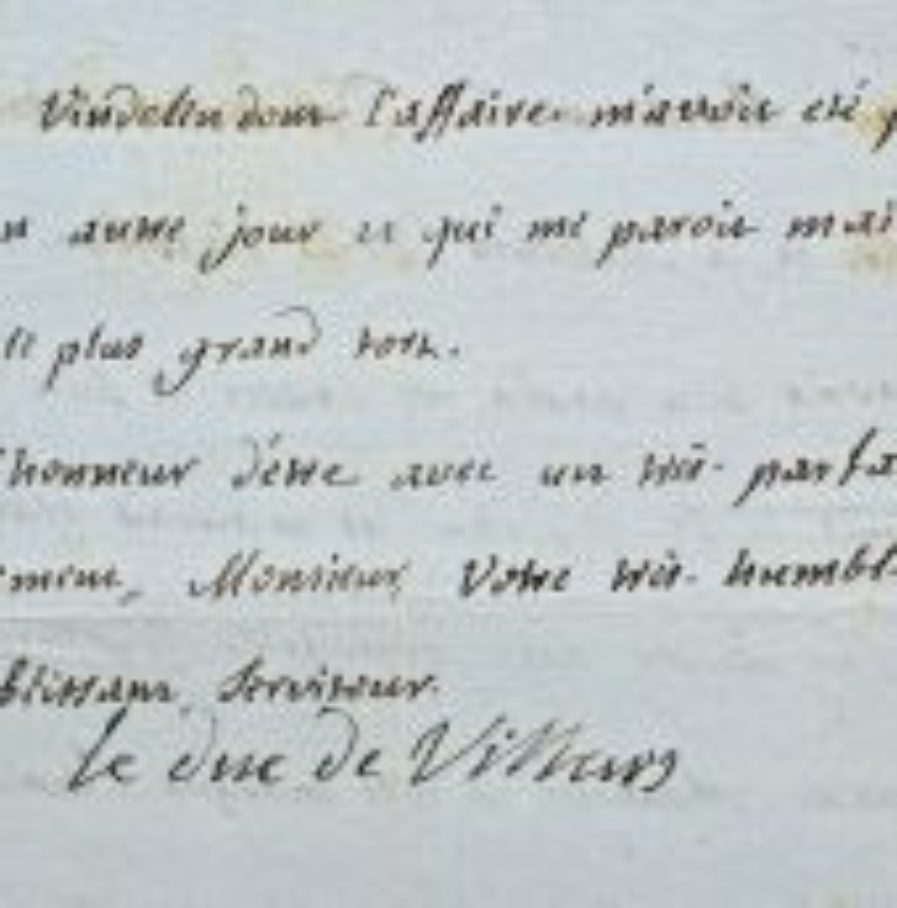 dont l'affaire m'avoit été p
n autre jour ce qui me paroit mai
le plus grand tort.
l'honneur d'être avec un très parfa
ement, Monsieur, Votre très humbl
béissant Serviteur.
le duc de Villars